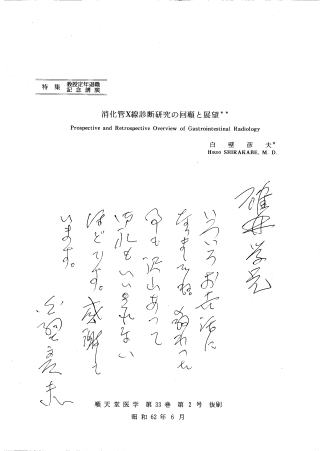 特集
教授定年退職
記念講演
消化管X線診断研究の回顧と展望**
Prospective and Retrospective Overview of Gastrointestinal Radiology
白壁彦夫*
Hikoo SHIRAKABE, M. D.
学兄
いろいろお世話に
なりましたね。教わった
事も沢山あって
御礼もいいきれない
ほどです。感謝して
います。
白壁彦夫
順天堂医学 第33巻 第2号 抜刷
昭和62年6月